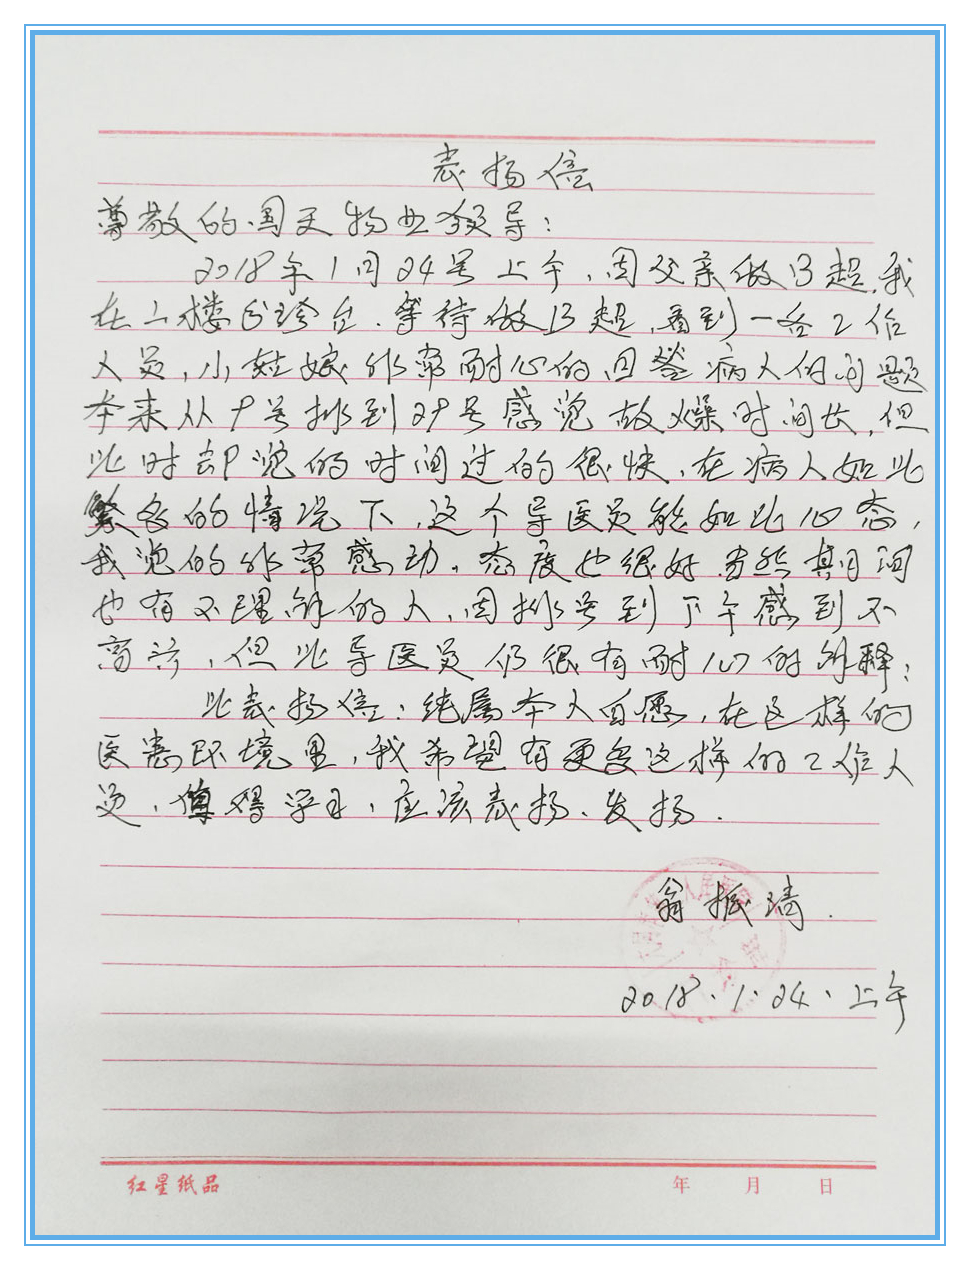 表扬信
尊敬的国天物业领导：
2018年1月24号上午，因父亲做B超，我
在二楼B诊台．等待做B超，看到一名工作
人员，小姑娘非常耐心的回答病人的问题
本来从9号排到29号感觉故燥时间长，但
此时却觉的时间过的很快，在病人如此
繁多的情况下，这个导医员能如此心态，
我觉的非常感动，态度也很好．当然其间
也有不理解的人，因排号到下午感到不
高兴，但此导医员仍很有耐心的解释；
此表扬信：纯属本人自愿，在这样的
医患环境里，我希望有更多这样的工作人
员，值得学习，应该表扬、发扬．
翁振清．
2018．1．24．上午
红星纸品
年 月 日